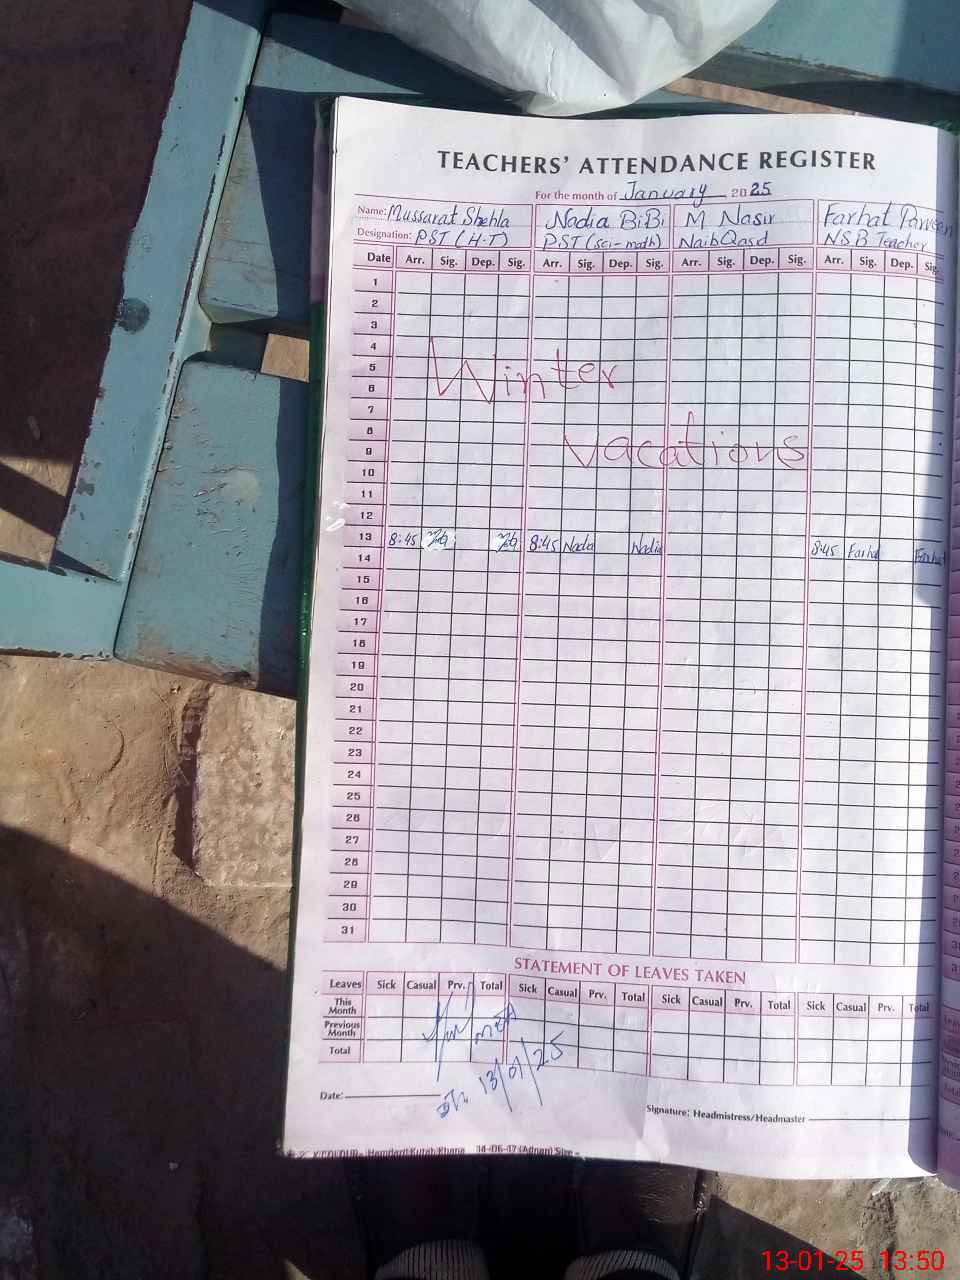 TEACHERS' ATTENDANCE REGISTER
For the month of January 2025
Name: Mussarat Shehla Nadia BiBi M Nasir Farhat Parveen
Designation: PST (H-T) PST (sci-math) Naib Qasd NSB Teacher
Date Arr. Sig. Dep. Sig. Arr. Sig. Dep. Sig. Arr. Sig. Dep. Sig. Arr. Sig. Dep. Sig.
1
2
3
4
5
6
7
8
9
10
11
12
Winter
vacations
13 8:45 8:45 Nadia Nadia 8:45 Farhat Farhat
14
15
16
17
18
19
20
21
22
23
24
25
26
27
28
29
30
31
STATEMENT OF LEAVES TAKEN
Leaves Sick Casual Prv. Total Sick Casual Prv. Total Sick Casual Prv. Total Sick Casual Prv. Total
This Month
Previous Month
Total
MEA
13/01/25
Date:
Signature: Headmistress/Headmaster
13-01-25 13:50